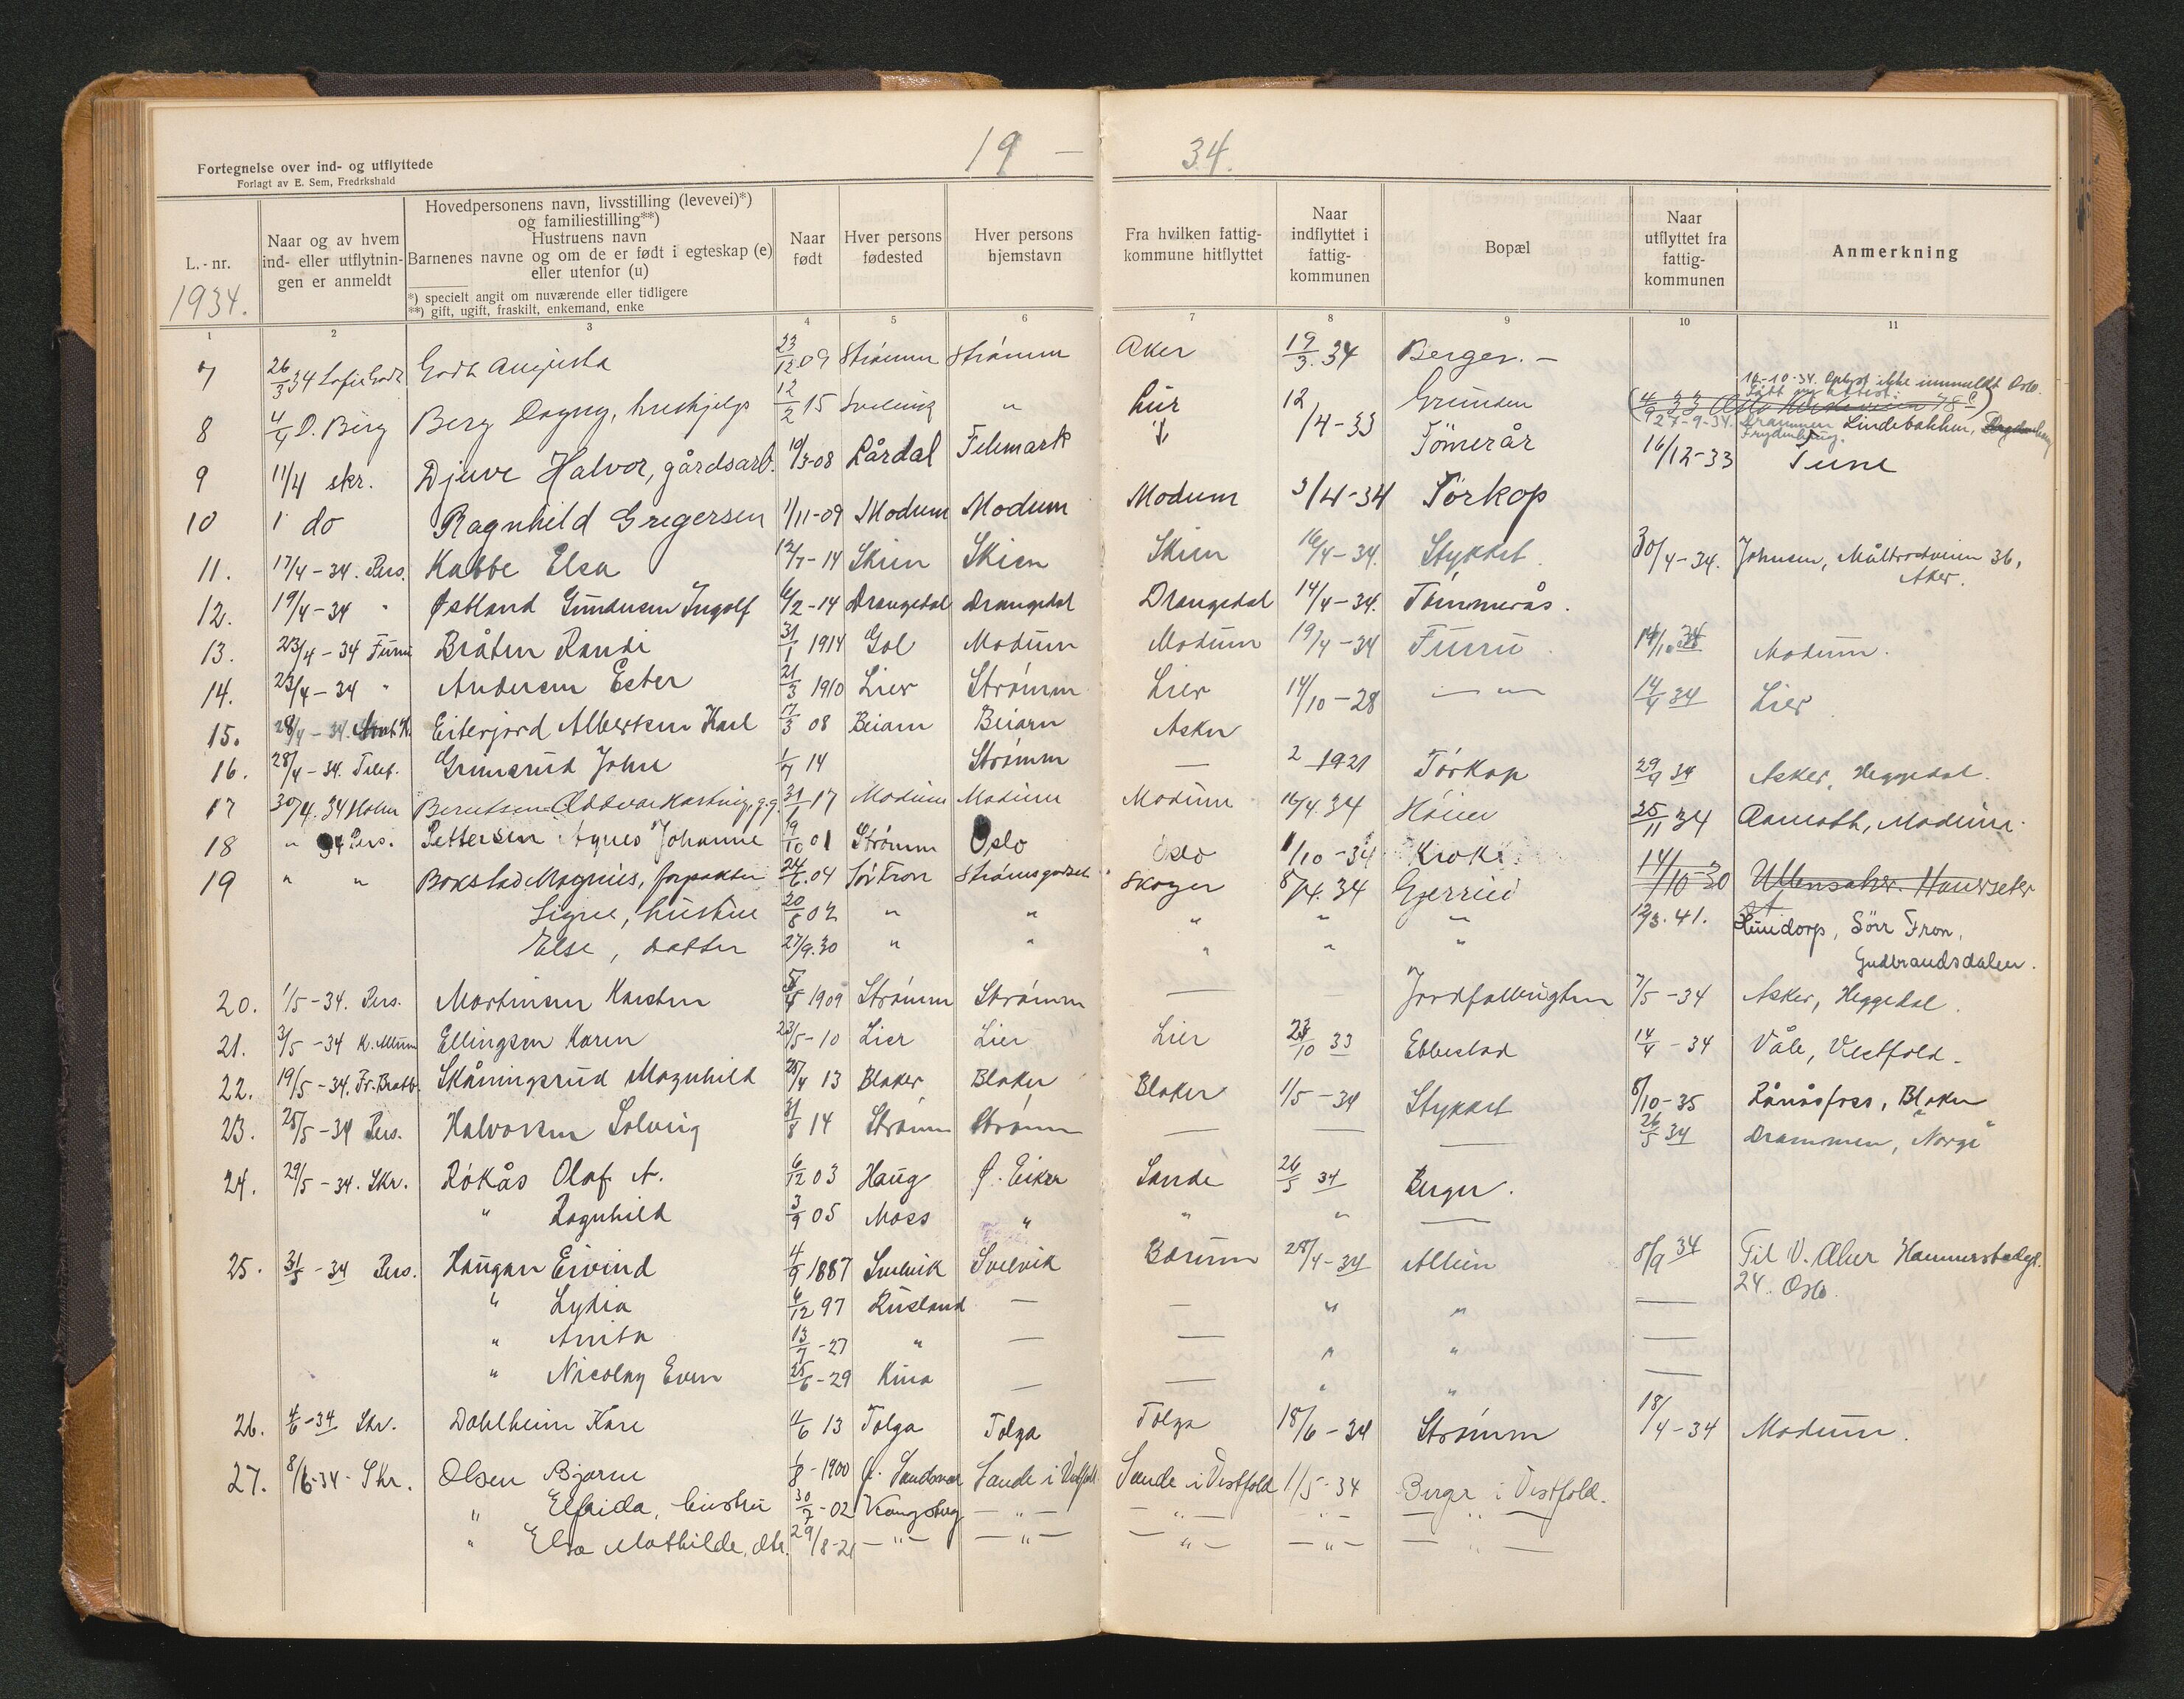 19 — 34.
Fortegnelse over ind- og utflyttede
Forlagt av E. Sem, Fredrkshald
L.-nr.
1934.
Naar og av hvem
ind- eller utflytnin-
gen er anmeldt
Hovedpersonens navn, livsstilling (levevei)*)
og familiestilling**)
Hustruens navn
Barnenes navne og om de er født i egteskap (e)
eller utenfor (u)
*) specielt angit om nuværende eller tidligere
**) gift, ugift, fraskilt, enkemand, enke
Naar
født
Hver persons
fødested
Hver persons
hjemstavn
Fra hvilken fattig-
kommune hitflyttet
Naar
indflyttet i
fattig-
kommunen
Bopæl
Naar
utflyttet fra
fattig-
kommunen
Anmerkning
1 2 3 4 5 6 7 8 9 10 11
7 26/3 34 Augusta 23/12 09 Strømm Strømm Aker 19/3.34 Berger. —
8 4/4 D. Berg Berg Dagny, hushjelp 12/2 15 Svelvik " Lier 12/4-33 Grunden 27-9-34. Drammen Lindebakken,
9 11/4 skr. Djuve Halvor, gårdsarb. 19/3-08 Lårdal Telemark Tömerår 16/12-33 Tune
10 do Ragnhild Gregersen 1/11-09 Modum Modum Modum 3/4-34 Törkop
11. 17/4-34. Pers. Kabbe Elsa 12/7-14 Skien Skien Skien 16/4-34. Stykket 30/4-34. Johnsen, 36,
Aker.
12. 19/4-34 " Østland Gundersen Ingolf 6/2-14 Drangedal Drangedal Drangedal 14/4-34. Tømmerås.
13. 23/4-34 Furu Bråten Randi 31/1 1914 Gol Modum Modum 19/4-34 Furru 14/10 34 Modum.
14. 23/4-34 " Andersen Ester 21/3 1910 Lier Strømm Lier 14/10-28 — " — 14/4 34 Lier
15. 28/4-34. Eiterjord Albertsen Karl 17/3 08 Beiarn Beiarn Asker
16. 28/4-34. Telef. Grimsrud John 1/7 14 Strømm — 2 1921 Törkop 29/9 34 Asker, Heggedal.
17 30/4.34 Holm Berntsen Oddvar Hartvig, g.g. 31/1 17 Modum Modum Modum 16/4.34 Höien 25/11 34 Aamoth, Modum.
18 " 34 Pers. Pettersen Agnes Johanne 19/10 01 Strømm Oslo Oslo 1/10-34 Kroke
19 " " Bokstad Magnus, forpakter 24/6.04 Sör Fron Strømsgodset Skoger 8/4.34 Gjerrud 14/10-30 Ullensaker Haurseter
Signe, hustru 20/8 02 " " " " " 12/3.41. Hundorp, Sörr Fron,
Else, datter 27/9.30 " " " " " Gudbrandsdalen.
20. 1/5-34. Pers. Martinsen Karsten 5/8 1909 Strømm Strømm — Jordfallingten 7/5-34 Asker, Heggedal.
21. 3/5-34 K. Ellingsen Karen 23/5-10 Lier Lier Lier 23/10 33 Ebbestad 14/4-34 Våle, Vestfold.
22. 19/5-34. Fr. Bratb. Skåningsrud Magnhild 28/4 13 Blaker Blaker Blaker 1/5-34 Stykket 8/10-35 Rånåsfoss, Blaker
23. 25/5-34 Pers. Halvorsen Solveig 31/8 14 Strømm Strømm — — — 26/5 34 Drammen, "Norge"
24. 29/5-34. Skr. Rökås Olaf A. 6/12 03 Haug Ø. Eiker Sande 26/5 34 Berger.
" Ragnhild 3/9 05 Moss " " " —
25. 31/5-34 Pers. Haugan Eivind 4/9 1887 Svelvik Svelvik Bærum 28/4-34 Allum 8/9 34 Til V. Aker Hammerstadgt.
24. Oslo.
" Lydia 6/12 97 Rusland — — " " —
" Anita 13/7-27 " — — " " —
" Nicolay Even 25/6-29 Kina — — " " —
26. 4/6-34 Skr. Dahlheim Kåre 4/6 13 Tolga Tolga Tolga 18/6-34 Strømm 18/4-34 Modum.
27. 8/6-34 Skr. Olsen Bjarne 1/8-1900 Ø. Sandsvær Sande i Vestfold Sande i Vestfold 1/5-34 Berger i Vestfold.
" Elfrida, hustru 30/7-02 Kongsberg — " — — " — — " — — " —
" Elsa Mathilde, dtr. 29/8-21 — " — — " — — " — — " — — " —